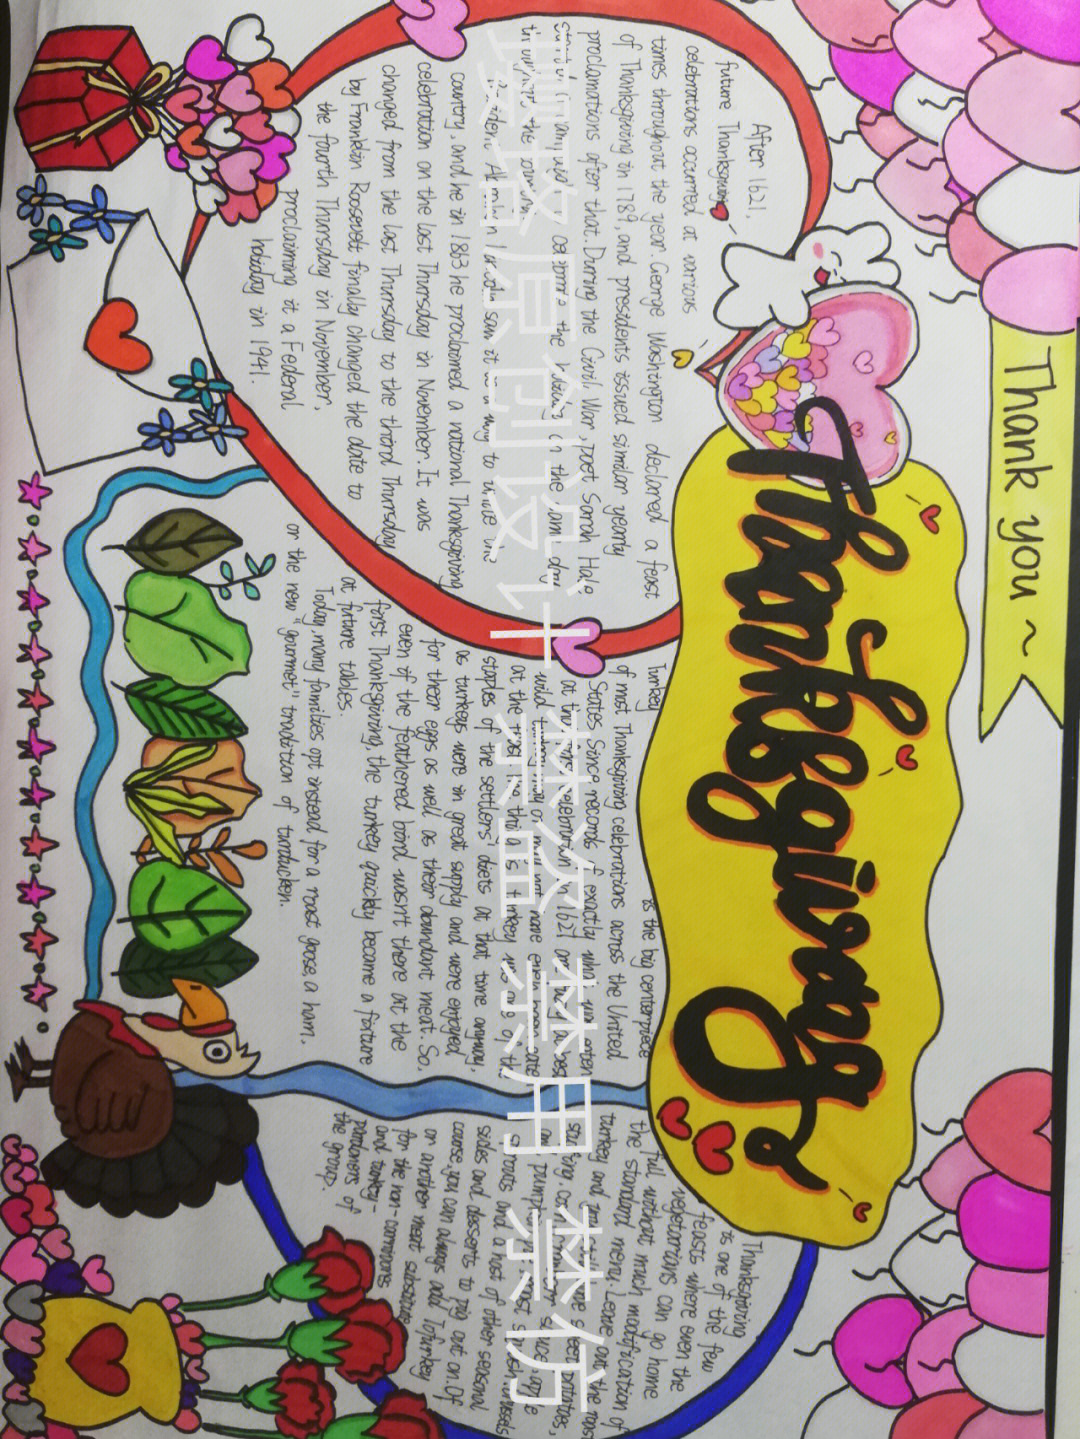 Thank you ~
Thanksgiving
After 1621,
future Thanksgiving
celebrations occurred at various
times throughout the year. George Washington declared a feast
of Thanksgiving in 1789, and presidents issued similar yearly
proclamations after that. During the Civil War, poet Sarah Hale
country, and he in 1863 he proclaimed a national Thanksgiving
celebration on the last Thursday in November. It was
changed from the last Thursday to the third Thursday
by Franklin Roosevelt finally changed the date to
the fourth Thursday in November,
proclaiming it a Federal
holiday in 1941.
Turkey is the big centerpiece
of most Thanksgiving celebrations across the United
States. Since records of exactly what was eaten
at the celebration in 1621
wild turkey may or may not have even been
at the
staples of the settlers' diets at that time anyway,
as turkeys were in great supply and were enjoyed
for their eggs as well as their abundant meat. So,
even if the feathered bird wasn't there at the
first Thanksgiving, the turkey quickly became a fixture
at future tables.
Today, many families opt instead for a roast goose, a ham,
or the new "gourmet" tradition of turducken.
Thanksgiving
is one of the few
feasts where even the
vegetarians can go home
the full without much modification of
the standard menu. Leave out the roast
turkey and sweet potatoes,
and a host of other seasonal
sides and desserts to pig out on. Of
course, you can always add Tofurkey
or another meat substitute
for the non-carnivores
and turkey-
pardoners of
the group.
璞珞原创设计 禁盗禁用禁仿